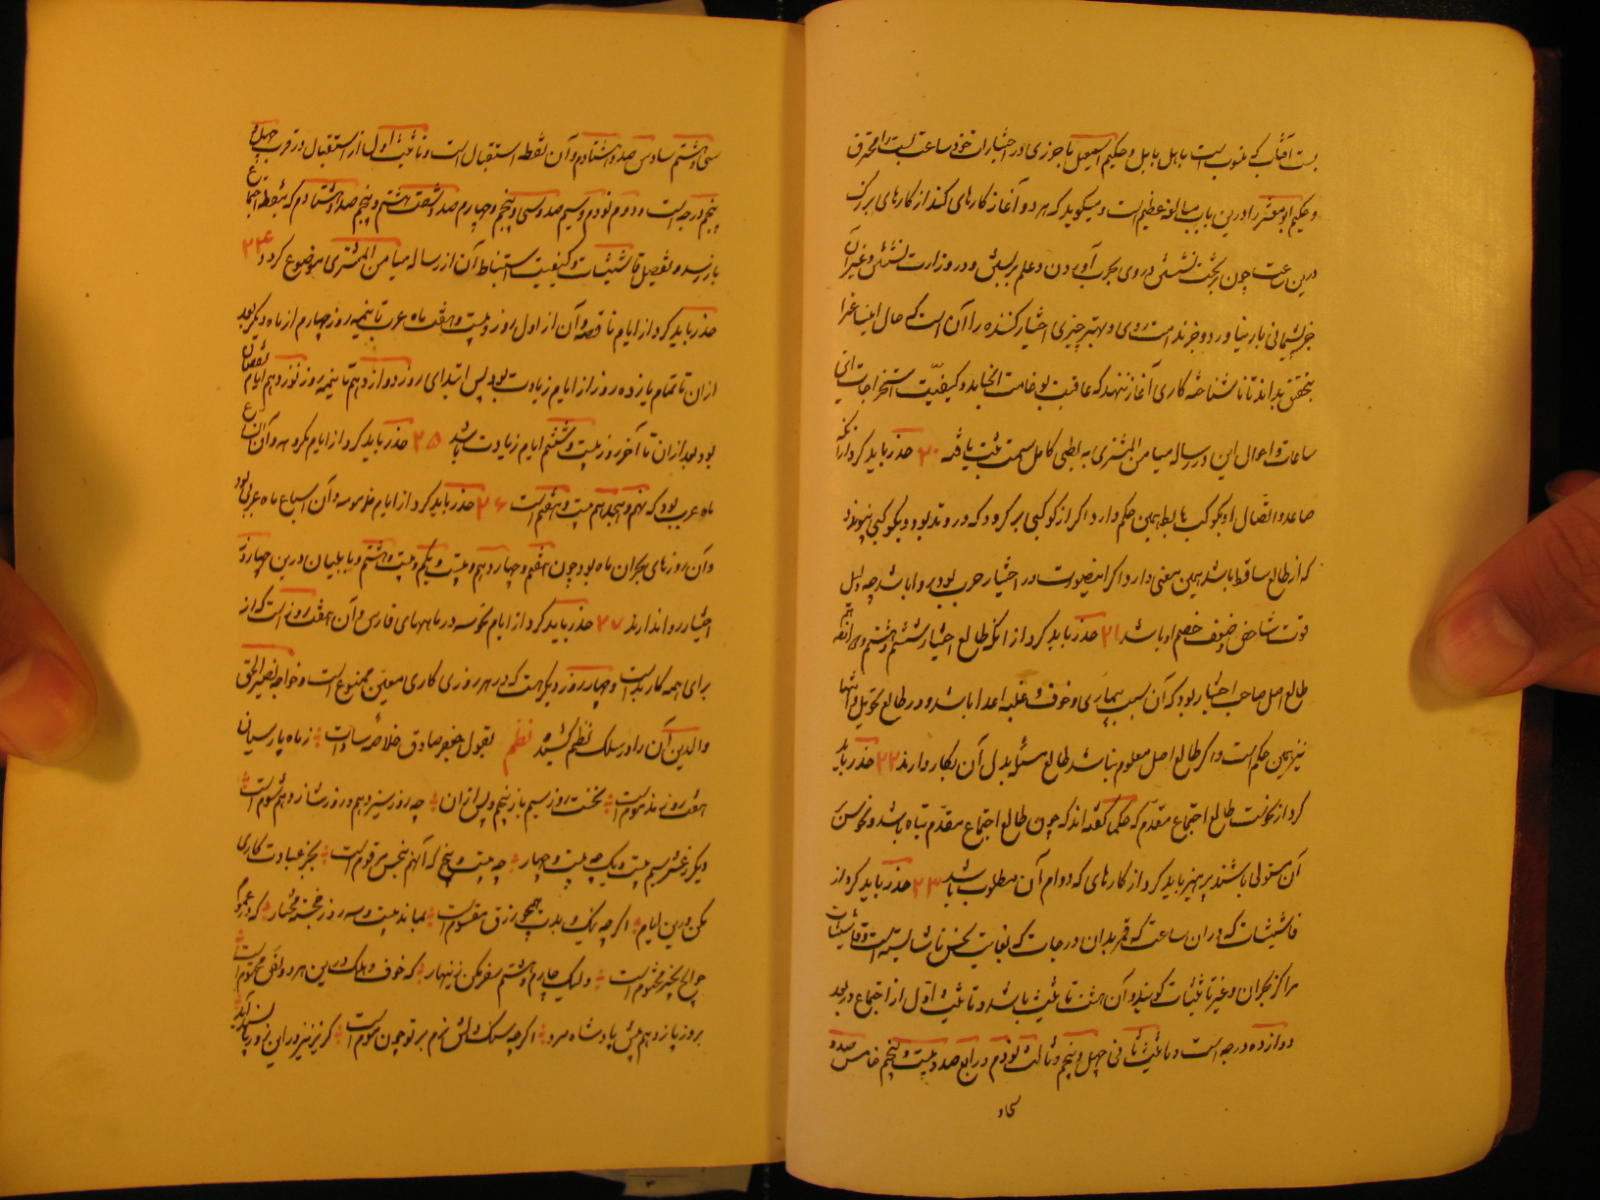 بست آفتاب که منوب است باهل بابل و حکیم اسمعیل تاجوزی در اختیارات خود ساعت لبست را محترق
و حکیم ابومعشر را درین باب مبالغه عظیم است و میگوید که هر دو آغاز کارهای کند از کارهای بزرک
درین ساعت چون بر تخت نشستن و روی بحرب آوردن و علم بر بستن و در وزارت نشستن و غیر آن
جز پشیمانی بار نیاورد و جز ندامت روی و بهتر چیزی اختیار کننده را آن است که حال این ساعتها را
بتحقیق بداند تا ناشناخته کاری آغاز ننهد که عاقبت بوخامت انجامد و کیفیت استخراجات این
ساعات و احوال این در رساله میامن المشتری به بطی کامل سمت ثبت یافته ۲۰ حذر باید کرد از آنکه
صاعد و اتصال او بکوکب هابط همین حکم دارد اگر از کوکبی بر گردد که در وتد بود و بکوکبی پیوندد
که از طالع ساقط باشد همین معنی دارد اگر اینصورت در اختیار حرب بود روا باشد چه دلیل
قوت شاخص و ضعف خصم او باشد ۲۱ حذر باید کرد از انکه طالع اختیار ششم و هشتم و
طالع اصل صاحب اختیار بود که آن سبب بیماری و خوف و غلبه اعدا باشد و در طالع تحویل و انتها
نیز همین حکم است و اگر طالع اصل معلوم نباشد طالع مسئله بدل آن بکار دارند ۲۲ حذر باید
کرد از نحوست طالع اجتماع مقدم که حکما گفته اند که چون طالع اجتماع مقدم تباه باشد و نحوس بر
آن مستولی باشند پرهیز باید کرد از کارهای که دوام آن مطلوب باشد ۲۳ حذر باید کرد از
فاشیثات که در ان ساعت که قمر بدان درجات که بغایت نحس ناشایسته است و فاشیثات
مراکز بحران و غیر تاثیثات کویند و آن هشت تاثیث باشد و تاثیث اول از اجتماع در بعد
دوازده درجه است و تاثیث ثانی چهل و پنجم و ثالث نودم و رابع صد و بیست و پنجم خامس صد و
سی و هشتم سادس صد و هشتادم و آن نقطه استقبال است و تاثیث اول از استقبال در قرب چهل و
پنجم درجه است و دوم نودم و سیم صد و سی و پنجم و چهارم صد و شصت و هشتم و پنجم صد و هشتادم که بنقطه اجتماع
باز رسد و تفصیل تاسیثات و کیفیت استنباط آن از رساله میامن المشتری موضوع کردد ۲۴
حذر باید کرد از ایام ناقصه و آن از اول روز بیست و هفت ماه عرب تا نیمه روز چهارم از ماه دیکر بود
از ان تا تمام یازده روز از ایام زیادت بود پس ابتدای روز دوازدهم تا نیمه روز نوزدهم ایام نقصان
بود بعد از ان تا آخر روز بیست و ششم ایام زیادت باشد ۲۵ حذر باید کرد از ایام مکروهه و آن
ماه عرب بود که نهم و هیجدهم و بیست و هفتم است ۲۶ حذر باید کرد از ایام مذمومه و آن اسباع ماه عربی بود
و آن روزهای بحران ماه بود چون هفتم و چهاردهم و بیست و یکم و بیست و هشتم و بابلیان درین چهار روز
اختیار روا ندارند ۲۷ حذر باید کرد از ایام نحوسه در ماههای فارس و آن هفت روز است که از
برای همه کار بد است و چهار روز دیکر هست که در هر روزی کاری معین ممنوع است و خواجه نصیر الحق
والدین آن را در سلک نظم کشیده نظم بقول جعفر صادق خلاصه سادات زماه پارسیان
هفت روز مذموم است نخست روز سیم باز پنجم و پس از ان چه روز سیزدهم و روز شانزدهم شوم است
دیکر ز عشر سیم بیست و یک چه بیست و چهار چه بیست و پنج که آنهم نحس مرقوم است بجز عبادت کاری
مکن درین ایام اکرچه نیک و بدت همچو رزق مقسوم است بماند بیست و سه روز خجسته مختار که در عموم
حوایج بخیر مختوم است ولیک چارم و هشتم سفر مکن زنهار که خوف و هلاک درین هر دو نص محتوم است
بروز پانزدهم پیش پادشاه مرو اکرچه سنک دلش نرم بر تو چون موم است کریز نیز در این روز